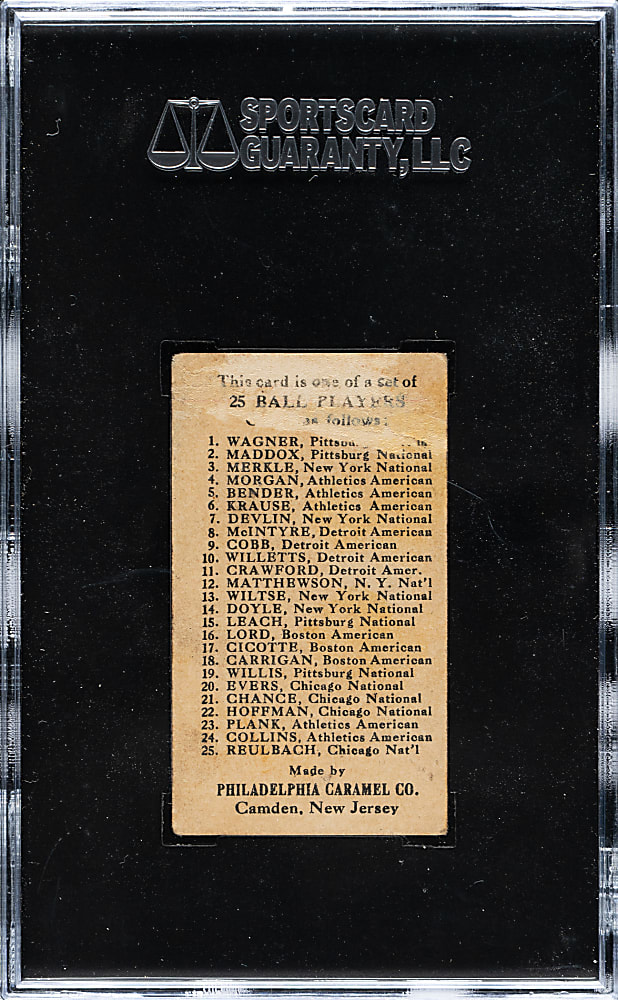 SPORTSCARD
GUARANTY, LLC
This card is one of a set of
25 BALL PLAYERS
as follows:
1. WAGNER,
2. MADDOX, Pittsburg National
3. MERKLE, New York National
4. MORGAN, Athletics American
5. BENDER, Athletics American
6. KRAUSE, Athletics American
7. DEVLIN, New York National
8. McINTYRE, Detroit American
9. COBB, Detroit American
10. WILLETTS, Detroit American
11. CRAWFORD, Detroit Amer.
12. MATTHEWSON, N. Y. Nat'l
13. WILTSE, New York National
14. DOYLE, New York National
15. LEACH, Pittsburg National
16. LORD, Boston American
17. CICOTTE, Boston American
18. CARRIGAN, Boston American
19. WILLIS, Pittsburg National
20. EVERS, Chicago National
21. CHANCE, Chicago National
22. HOFFMAN, Chicago National
23. PLANK, Athletics American
24. COLLINS, Athletics American
25. REULBACH, Chicago Nat'l
Made by
PHILADELPHIA CARAMEL CO.
Camden, New Jersey